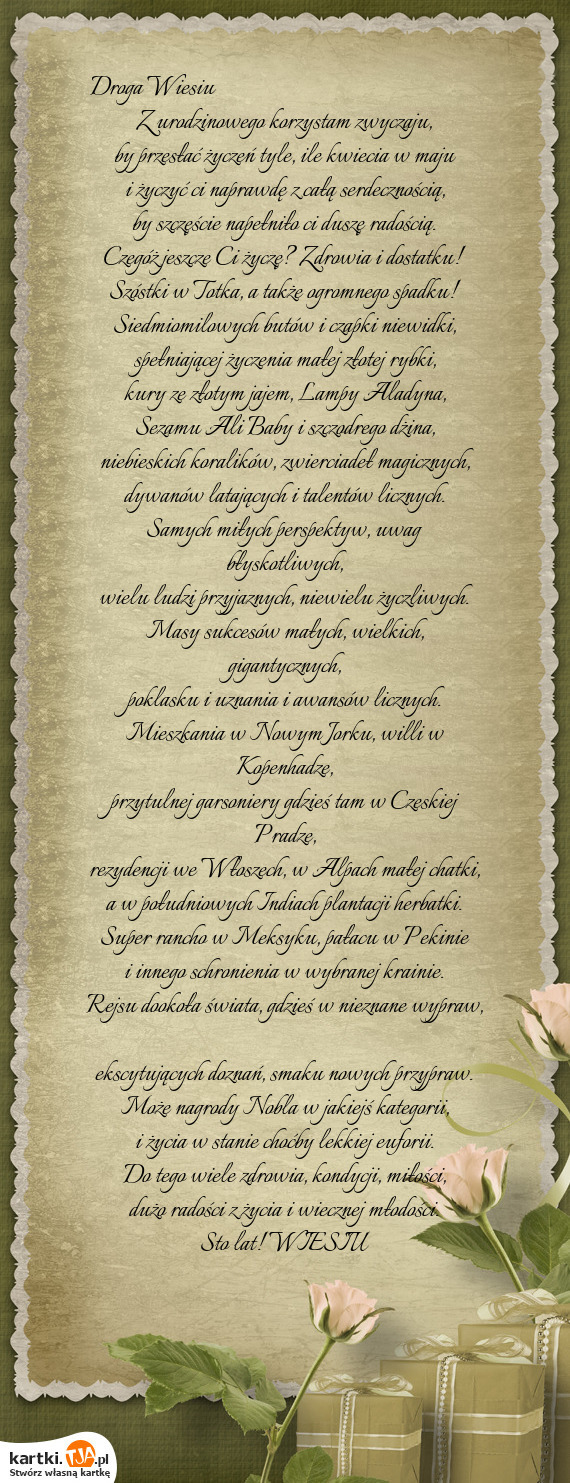 Droga Wiesiu
Z urodzinowego korzystam zwyczaju,
by przesłać życzeń tyle, ile kwiecia w maju
i życzyć ci naprawdę z całą serdecznością,
by szczęście napełniło ci duszę radością.
Czegóż jeszcze Ci życzę? Zdrowia i dostatku!
Szóstki w Totka, a także ogromnego spadku!
Siedmiomilowych butów i czapki niewidki,
spełniającej życzenia małej złotej rybki,
kury ze złotym jajem, Lampy Aladyna,
Sezamu Ali Baby i szczodrego dżina,
niebieskich koralików, zwierciadeł magicznych,
dywanów latających i talentów licznych.
Samych miłych perspektyw, uwag
błyskotliwych,
wielu ludzi przyjaznych, niewielu życzliwych.
Masy sukcesów małych, wielkich,
gigantycznych,
poklasku i uznania i awansów licznych.
Mieszkania w Nowym Jorku, willi w
Kopenhadze,
przytulnej garsoniery gdzieś tam w Czeskiej
Pradze,
rezydencji we Włoszech, w Alpach małej chatki,
a w południowych Indiach plantacji herbatki.
Super rancho w Meksyku, pałacu w Pekinie
i innego schronienia w wybranej krainie.
Rejsu dookoła świata, gdzieś w nieznane wypraw,
ekscytujących doznań, smaku nowych przypraw.
Może nagrody Nobla w jakiejś kategorii,
i życia w stanie choćby lekkiej euforii.
Do tego wiele zdrowia, kondycji, miłości,
dużo radości z życia i wiecznej młodości.
Sto lat! WIESIU
kartki.TJA.pl
Stwórz własną kartkę